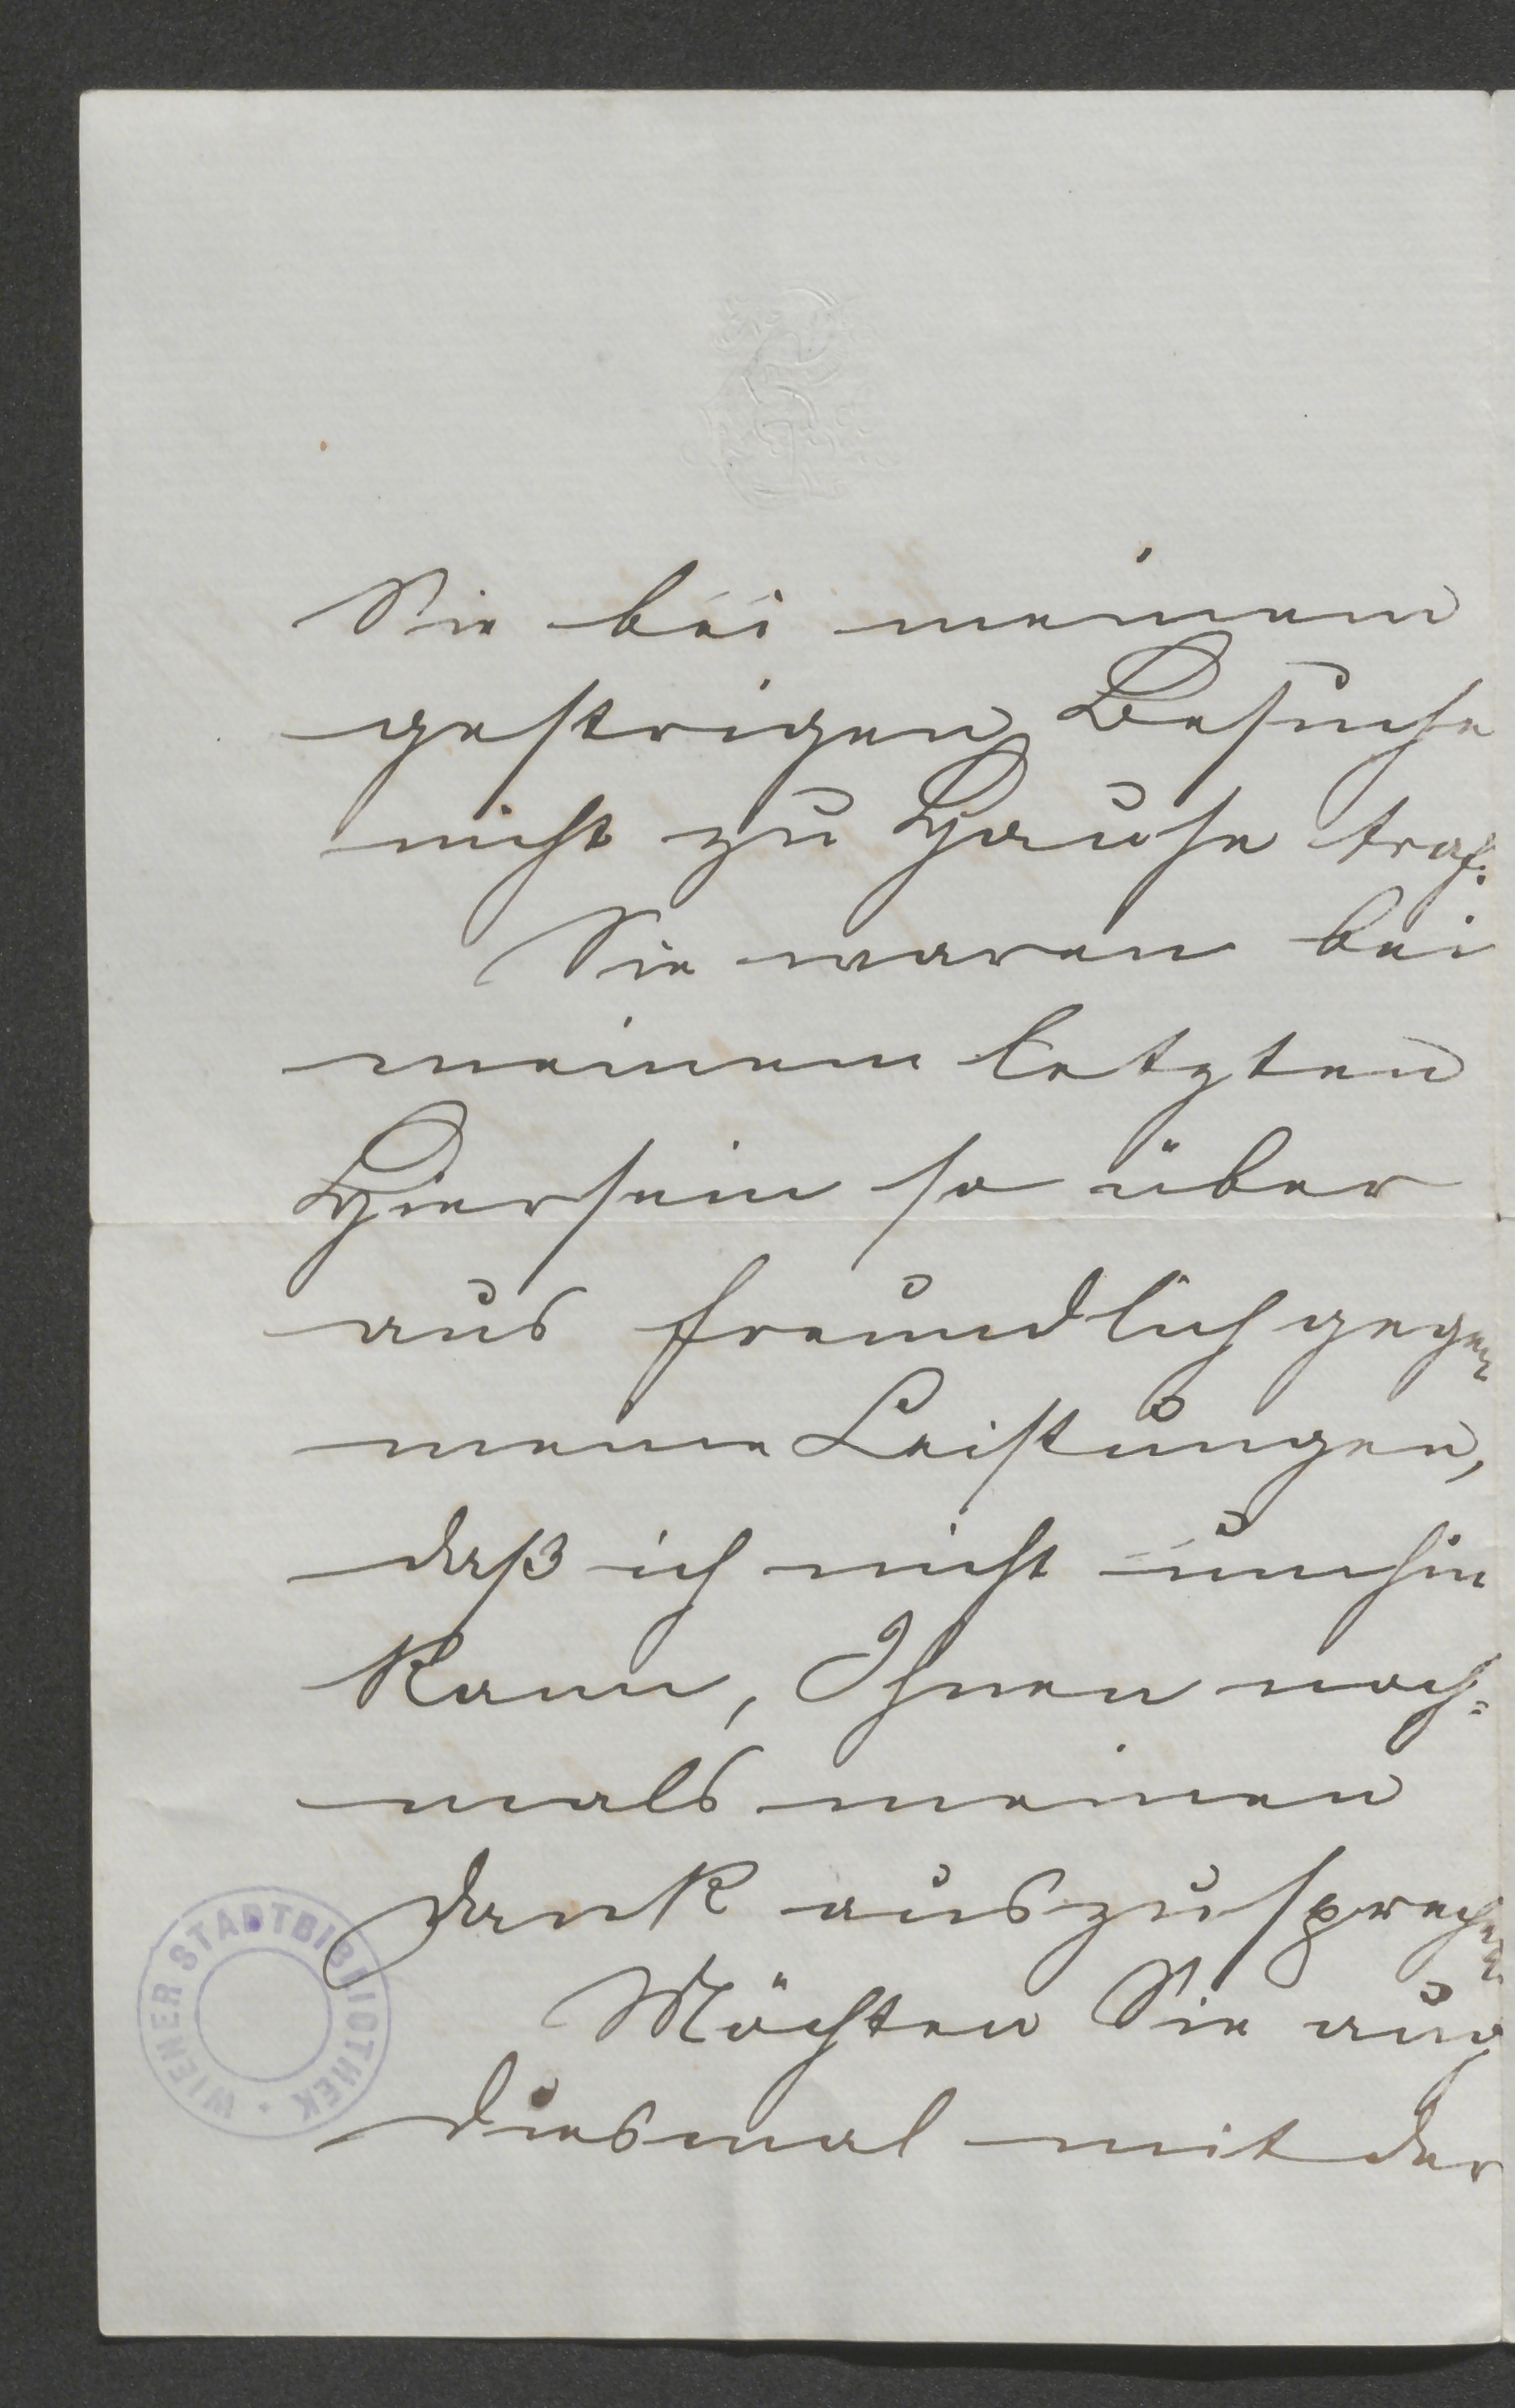 Sie bei meinem
gestrigen Besuche
nicht zu Hause traf.
Sie waren bei
meinem letzten
Hiersein so über
aus freundlich gegen
meine Leistungen,
daß ich nicht umhin
kann, Ihnen noch-
mals meinen
Dank auszusprechen.
Möchten Sie auch
diesmal mit der
WIENER STADTBIBLIOTHEK